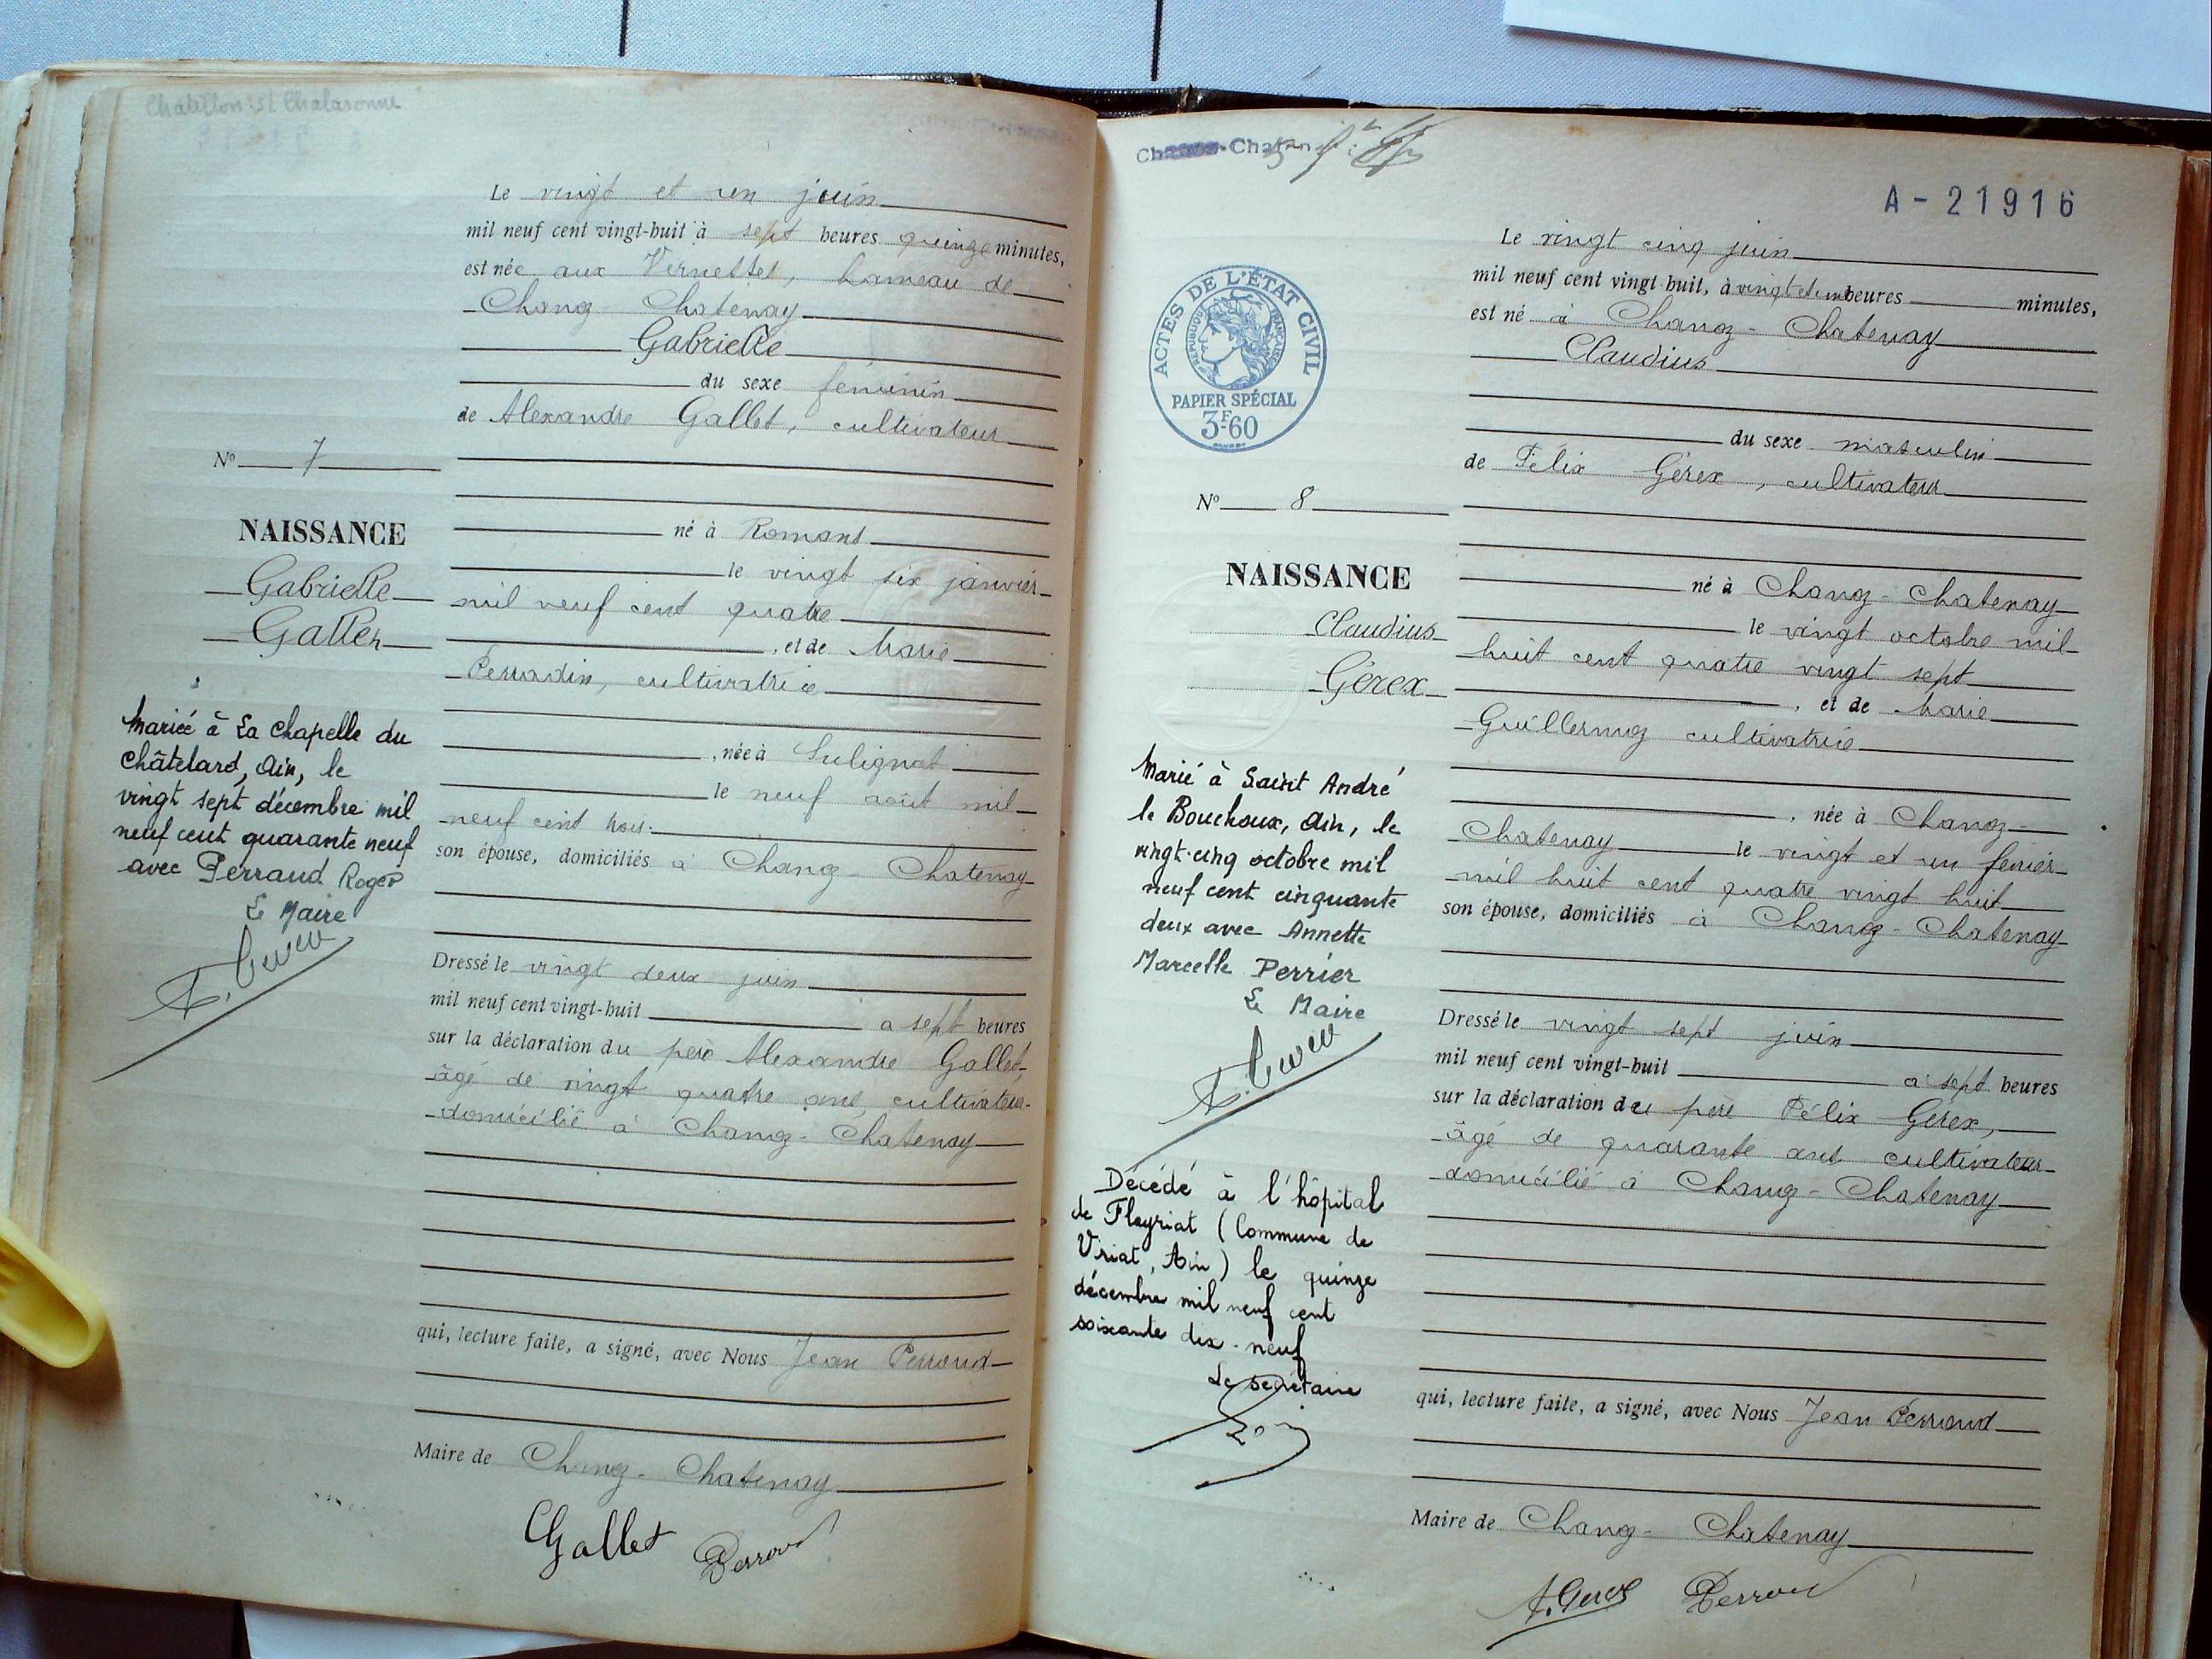 Chatillon st Chalaronne
Le vingt et un juin
mil neuf cent vingt-huit à sept heures quinze minutes,
est née aux Vernettes, hameau de
Chanoz-Chatenay
Gabrielle
du sexe féminin
de Alexandre Gallet, cultivateur
né à Romans
le vingt six janvier
mil neuf cent quatre
, et de Marie
Perradin, cultivatrice
, née à Sulignat
le neuf août mil
neuf cent
son épouse, domiciliés à Chanoz-Chatenay
Dressé le vingt deux juin
mil neuf cent vingt-huit à sept heures
sur la déclaration du père Alexandre Gallet,
âgé de vingt quatre ans, cultivateur
domicilié à Chanoz-Chatenay
qui, lecture faite, a signé, avec Nous Jean Perroud
Maire de Chanoz-Chatenay
Gallet Perroud
No 7
NAISSANCE
Gabrielle
Gallet
Mariée à La Chapelle du
Châtelard, Ain, le
vingt sept décembre mil
neuf cent quarante neuf
avec Perraud Roger
Le Maire
A-21916
ACTES DE L'ÉTAT CIVIL
RÉPUBLIQUE FRANÇAISE
PAPIER SPÉCIAL
3F60
Le vingt cinq juin
mil neuf cent vingt-huit, à vingt et un heures minutes,
est né à Chanoz-Chatenay
Claudius
du sexe masculin
de Félix Gérex, cultivateur
né à Chanoz-Chatenay
le vingt octobre mil
huit cent quatre vingt sept
, et de Marie
Guillermoz cultivatrice
, née à Chanoz-
Chatenay le vingt et un février
mil huit cent quatre vingt huit
son épouse, domiciliés à Chanoz-Chatenay
Dressé le vingt sept juin
mil neuf cent vingt-huit à sept heures
sur la déclaration du père Félix Gérex,
âgé de quarante ans cultivateur
domicilié à Chanoz-Chatenay
qui, lecture faite, a signé, avec Nous Jean Perroud
Maire de Chanoz-Chatenay
Perroud
No 8
NAISSANCE
Claudius
Gérex
Marié à Saint André
le Bouchoux, Ain, le
vingt-cinq octobre mil
neuf cent cinquante
deux avec Annette
Marcelle Perrier
Le Maire
Décédé à l'hôpital
de Fleyriat (Commune de
Viriat, Ain) le quinze
décembre mil neuf cent
soixante dix-neuf
Le secrétaire